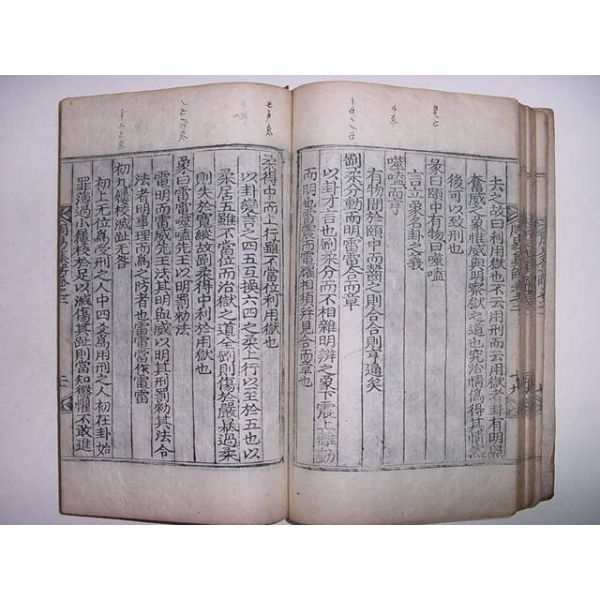 去之故曰利用獄也不云用刑而云用獄者卦有明照
奮威之象惟威與明察獄之道也究治情僞得其情然
後可以致刑也
彖曰頤中有物曰噬嗑
言口之象名卦之義
噬嗑而亨
有物間於頤中而齧之則合合則亨通矣
剛柔分動而明雷電合而章
以卦才言也剛柔分而不相雜明辨之象下震上離動
而明也雷電相須並見合而章也
柔得中而上行雖不當位利用獄也
以卦變言之四五互換六四之柔上行以至於五也以
柔居五雖不當位而治獄之道全剛則傷於嚴猛過柔
則失於寬縱故剛柔得中利於用獄也
象曰雷電噬嗑先王以明罰勑法
電明而雷威先王法其明與威以明其刑罰勑其法令
法者明事理而爲之防者也雷電當作電雷
初九屨校滅趾无咎
初上无位爲受刑之人中四爻爲用刑之人初在卦始
罪薄過小屨校於足以滅傷其趾則當知懲懼不敢進